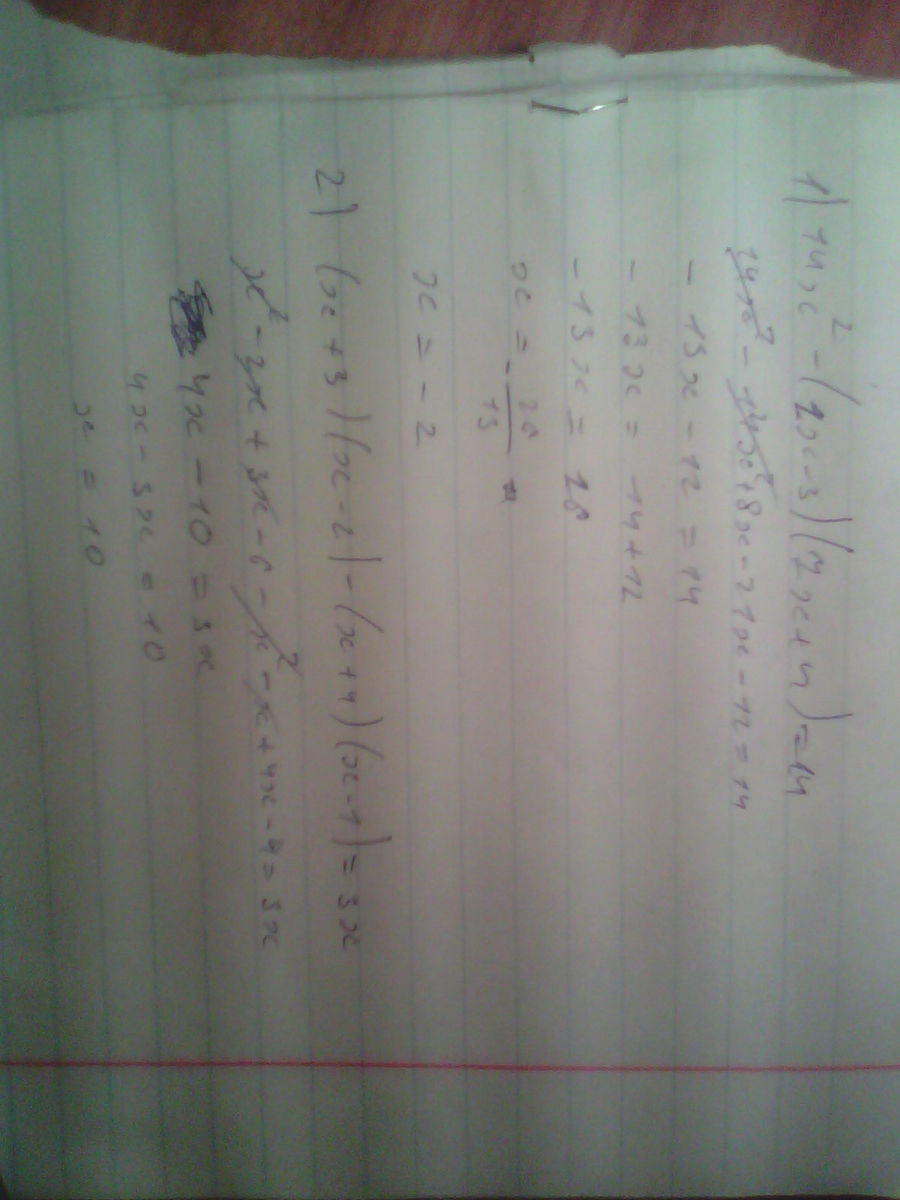 1) 14x² - (2x-3)(7x+4) = 14
14x² - 14x² + 8x - 21x - 12 = 14
- 13x - 12 = 14
- 13x = 14 + 12
- 13x = 26
x = - 26/13
x = - 2
2) (x+3)(x-2) - (x+4)(x-1) = 3x
x² - 2x + 3x - 6 - x² - x + 4x - 4 = 3x
4x - 10 = 3x
4x - 3x = 10
x = 10